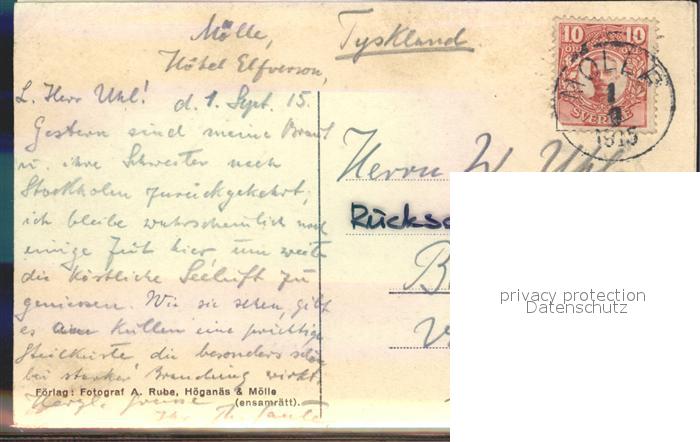 Mölle,
Hôtel Elfverson,
d. 1. Sept. 15.
L. Herr Uhl!
Gestern sind meine Braut
u. ihre Schwester nach
Stockholm zurückgekehrt;
ich bleibe wahrscheinlich noch
einige Zeit hier um weiter
die köstliche Seeluft zu
geniessen. Wie sie sehen, gibt
es am Kullen eine prächtige
Steilküste die besonders schön
bei starker Brandung wirkt.
Herzl. Grüsse
Ihr
Förlag: Fotograf A. Rube, Höganäs & Mölle
(ensamrätt).
Tyskland
10 10
SVERIGE
MÖLLE
1
9
1915
Herrn W. Uhl
Rücks
privacy protection
Datenschutz